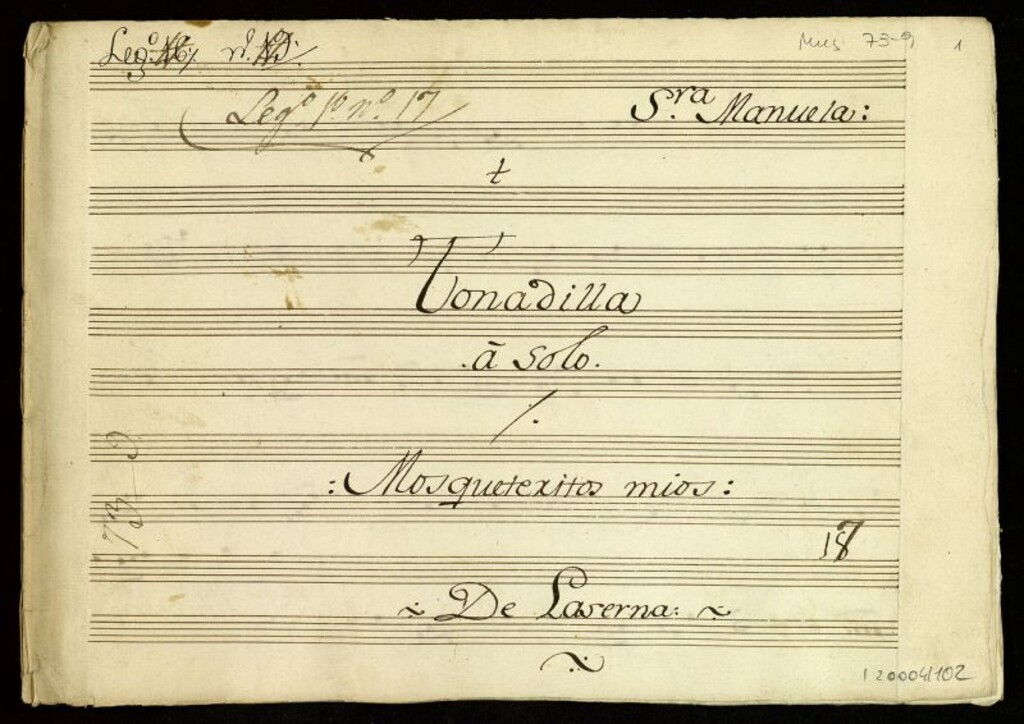 Leg.º n.º
Mus 73-9
1
Leg.º 1º n.º 17
S.ra Manuela:
t
Tonadilla
.à Solo.
:Mosqueteritos mios:
18
De Laserna:
1200041102